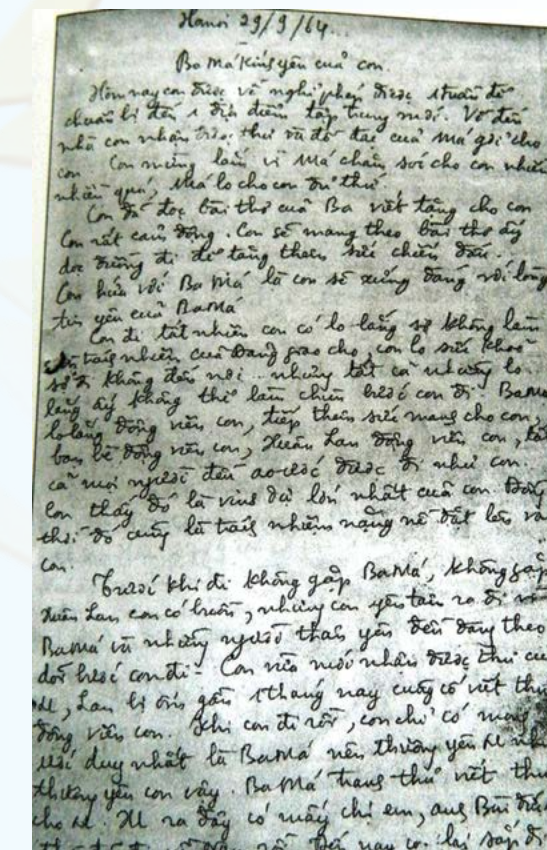 Hanoi 29/9/64...
Ba Má kính yêu của con.
Hôm nay con được về nghỉ phép được 1 tuần để
chuẩn bị đến 1 địa điểm tập trung mới. Về đến
nhà con nhận được thư và đồ đạc của Má gởi cho
con. Con mừng lắm vì Má chăm sóc cho con nhiều
nhiều quá, Má lo cho con đủ thứ.
Con đã đọc bài thơ của Ba viết tặng cho con
Con rất cảm động. Con sẽ mang theo bài thơ ấy
dọc đường đi để tăng thêm sức chiến đấu.
Con hứa với Ba Má là con sẽ xứng đáng với lòng
tin yêu của Ba Má
Con đi tất nhiên con có lo lắng sợ không làm
trách nhiệm của Đảng giao cho, con lo sức khoẻ
sợ đi không đến nơi... nhưng tất cả những lo
lắng ấy không thể làm chùn bước con đi. Ba Má
lo lắng động viên con, tiếp thêm sức mạnh cho con,
bạn bè động viên con, Xuân Lan động viên con, tất
cả mọi người đều ao ước được đi như con.
Con thấy đó là vinh dự lớn nhất của con. Đồng
thời đó cũng là trách nhiệm nặng nề đặt lên vai
con.
Trước khi đi không gặp Ba Má, không gặp
Xuân Lan con có buồn, nhưng con yên tâm ra đi vì
Ba Má và những người thân yêu đều đang theo
dõi bước con đi. Con vừa mới nhận được thư của
Lan bị ốm gần 1 tháng nay cũng có viết thư
động viên con. Khi con đi rồi, con chỉ có mong
ước duy nhất là Ba Má nên thương yêu XL như
thương yêu con vậy. Ba Má tranh thủ viết thư
cho XL. XL ra đây có mấy chị em, anh Bùi